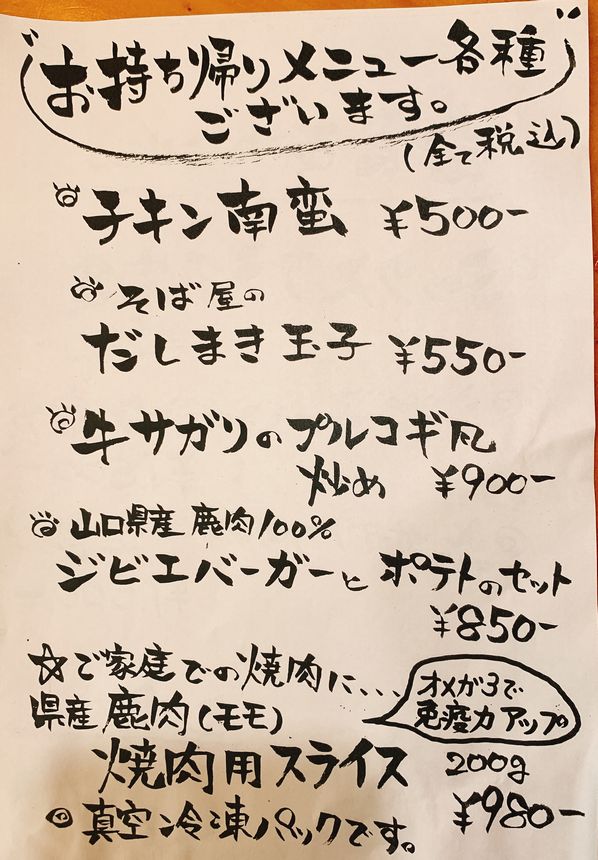 "お持ち帰りメニュー各種
ございます。"
(全て税込)
チキン南蛮 ¥500-
そば屋の
だしまき玉子 ¥550-
牛サガリのプルコギ風
炒め ¥900-
山口県産 鹿肉100%
ジビエバーガーとポテトのセット
¥850-
☆ご家庭での焼肉に...
県産鹿肉(モモ)
オメガ3で
免疫力アップ
焼肉用スライス 200g
¥980-
◎真空冷凍パックです。